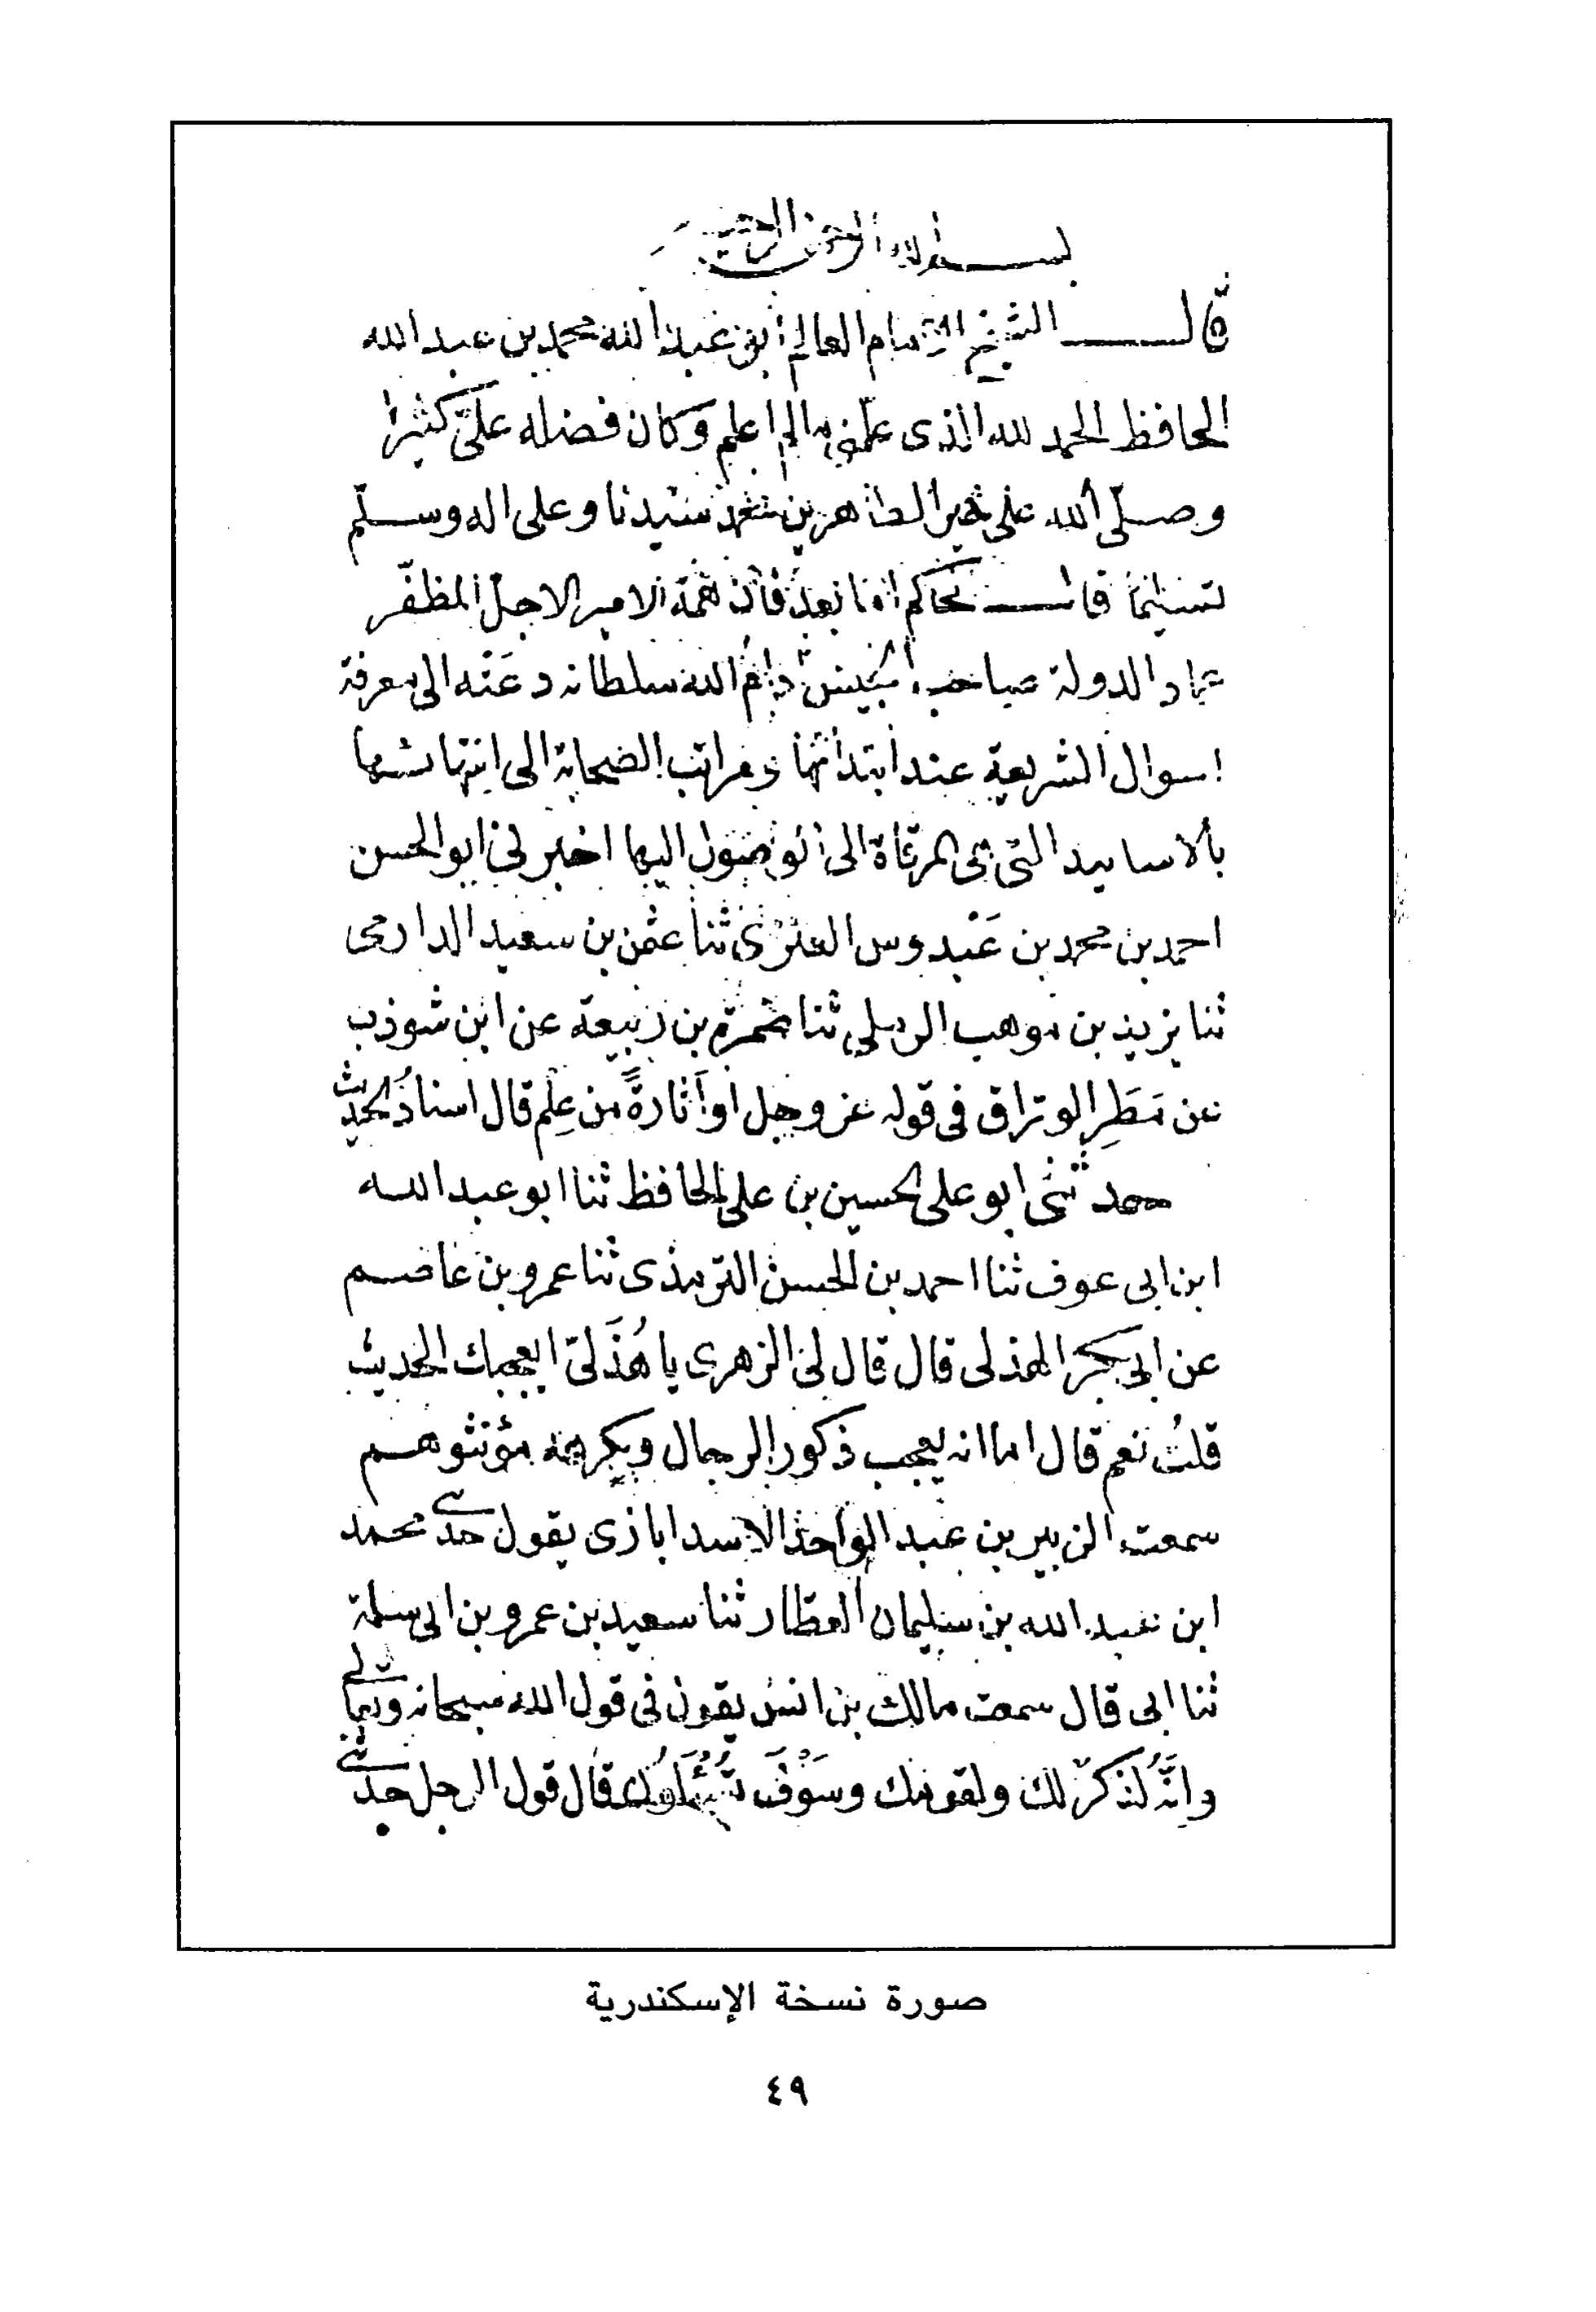 بسم الله الرحمن الرحيم
قال الشيخ الامام العالم ابى عبد الله محمد بن عبد الله
الحافظ الحمد لله الذى علمنى ما لم اعلم وكان فضله علىّ كثيرا
وصلّى الله على خير الطاهرين محمد سيدنا وعلى اله وسلّم
تسليما قال الحاكم اما بعد فان همة الامير الاجلّ المظفّر
عماد الدولة صاحب الجيش ادام الله سلطانه دعَتْه الى معرفة
اسوال الشريعة عند ابتدائها ومراتب الصحابة الى انتهائها
بالاسانيد التى هى المرقاة الى الوصول اليها اخبرنى ابو الحسن
احمد بن محمد بن عَبْدوس العنزى ثنا عثمن بن سعيد الدارمى
ثنا يزيد بن موهب الرملى ثنا ضمرة بن ربيعة عن ابن شوذب
عن مَطَرِ الوراق فى قوله عز وجل او أثارةً من عِلم قال اسنادُ الحديث
حدثنى ابو على الحسين بن على الحافظ ثنا ابو عبد الله
ابن ابى عوف ثنا احمد بن الحسن الترمذى ثنا عمرو بن عاصم
عن ابى بكر الهذلى قال قال لى الزهرى يا هُذَلىّ ايعجبك الحديث
قلتُ نعم قال اما انه يعجب ذكور الرجال ويكرهه مؤنثوهم
سمعت الزبير بن عبد الواحد الاسداباذى يقول حدثنى محمد
ابن عبد الله بن سليمان العطّار ثنا سعيد بن عمرو بن ابى سلمة
ثنا ابى قال سمعت مالك بن انس يقول فى قول الله سبحانه وتعالى
وانَّه لَذكرٌ لك ولقومك وسَوْفَ تُسْئَلُون قال قول الرجل حدثنى
صورة نسخة الإسكندرية
٤٩